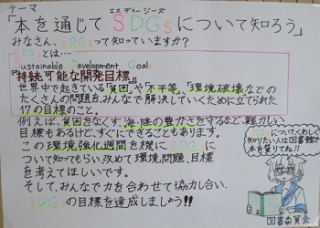 テーマ
エスディージーズ
「本を通じて SDGsについて知ろう」
みなさん、SDGsって知っていますか?
SDGsとは…
Sustainable Development Goals
『持続可能な開発目標』
世界中で起きている「貧困」や「不平等」、「環境破壊」などの
たくさんの問題を、みんなで解決していくために立てられた
17の目標のこと。
例えば、貧困をなくす、海・陸の豊かさを守るなど、難しい
目標もあるけど、すぐにできることもあります。
この環境強化週間を機にSDGsに
ついて知ってもらい改めて環境問題、目標
を考えてほしいです。
そして、みんなで力を合わせて協力し合い、
SDGsの目標を達成しましょう!!
SDGsについてくわしく
知りたい人は図書館で
本を借りてね!!
図書委員会